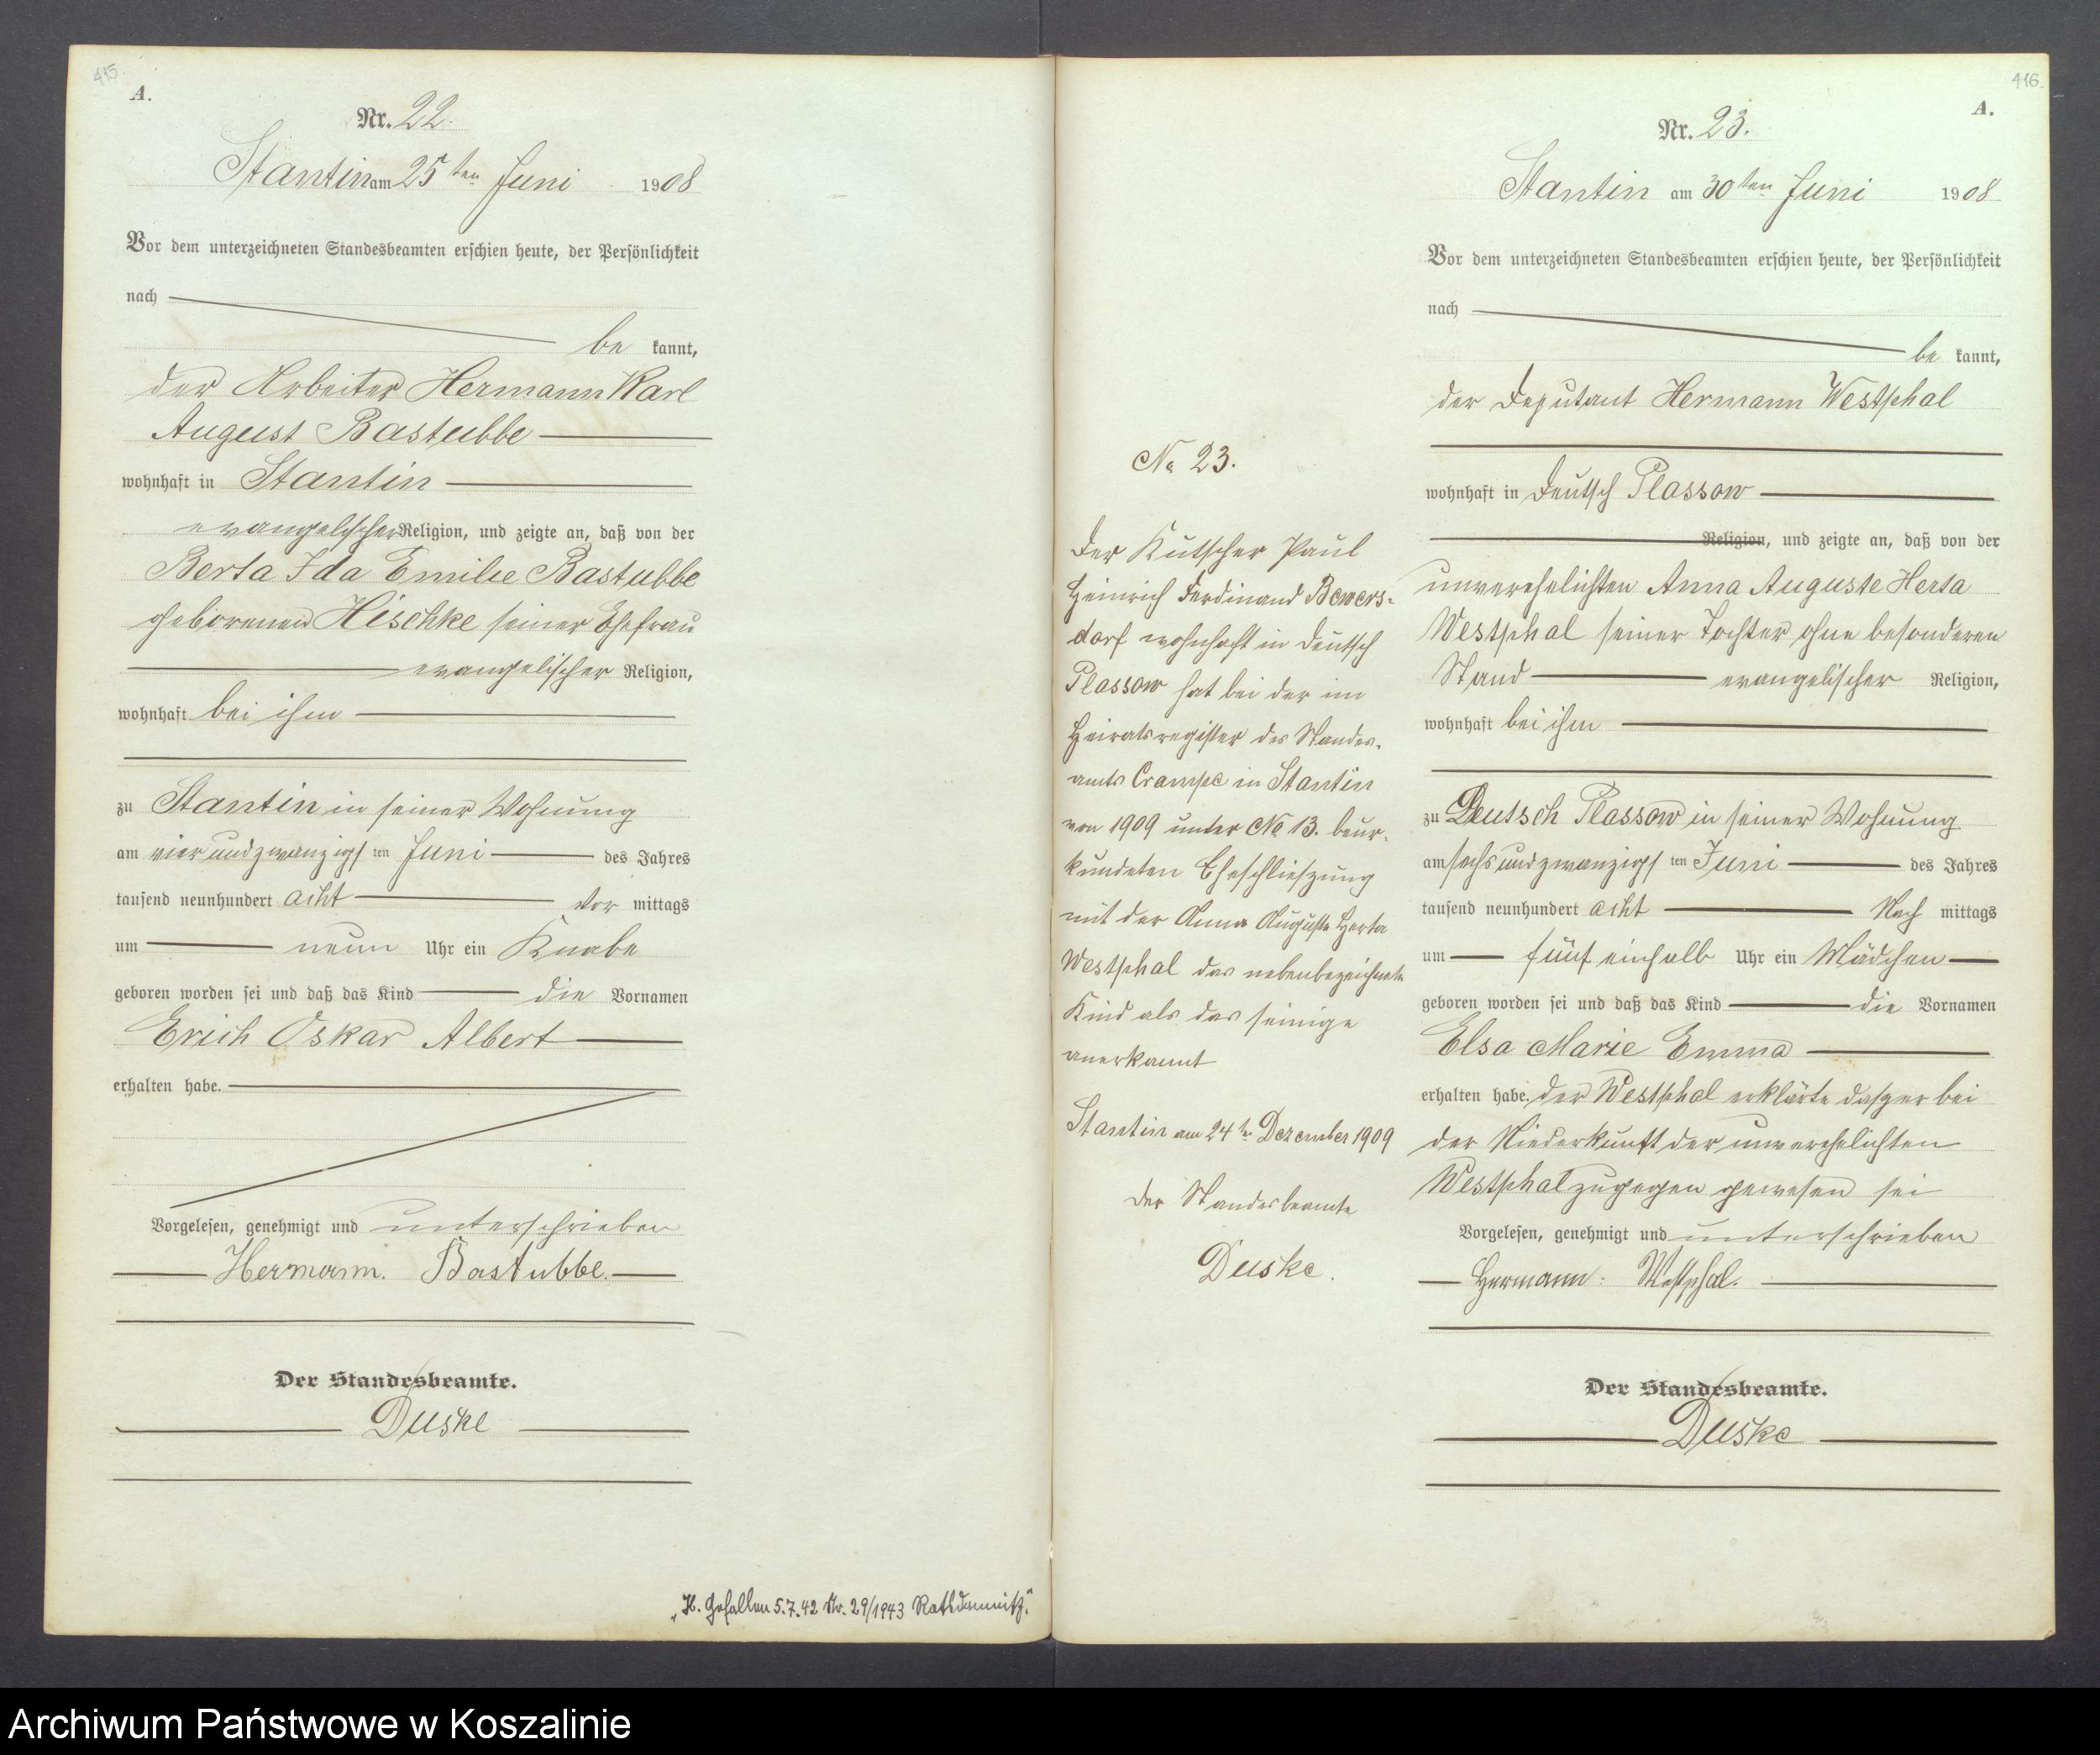 415.
A.
Nr. 22.
Stantin am 25ten Juni 1908
Vor dem unterzeichneten Standesbeamten erschien heute, der Persönlichkeit
nach
be kannt,
der Arbeiter Hermann Karl
August Bastubbe
wohnhaft in Stantin
evangelischer Religion, und zeigte an, daß von der
Berta Ida Emilie Bastubbe
geborenen Hischke seiner Ehefrau
evangelischer Religion,
wohnhaft bei ihm
zu Stantin in seiner Wohnung
am vier und zwanzigsten Juni des Jahres
tausend neunhundert acht Vor mittags
um neun Uhr ein Knabe
geboren worden sei und daß das Kind die Vornamen
Erich Oskar Albert
erhalten habe.
Vorgelesen, genehmigt und unterschrieben
Hermann. Bastubbe.
Der Standesbeamte.
Duske
"H. Gefallen 5.7.42 Nr. 29/1943 Rathsdamnitz."
416.
A.
Nr. 23.
Stantin am 30ten Juni 1908
Vor dem unterzeichneten Standesbeamten erschien heute, der Persönlichkeit
nach
be kannt,
der Deputant Hermann Westphal
wohnhaft in Deutsch Plassow
Religion, und zeigte an, daß von der
unverehelichten Anna Auguste Herta
Westphal seiner Tochter ohne besonderen
Stand evangelischer Religion,
wohnhaft bei ihm
zu Deutsch Plassow in seiner Wohnung
am sechs und zwanzigsten Juni des Jahres
tausend neunhundert acht Nach mittags
um fünf einhalb Uhr ein Mädchen
geboren worden sei und daß das Kind die Vornamen
Elsa Marie Emma
erhalten habe. Der Westphal erklärte daß er bei
der Niederkunft der unverehelichten
Westphal zugegen gewesen sei
Vorgelesen, genehmigt und unterschrieben
Hermann. Westphal.
Der Standesbeamte.
Duske
No 23.
Der Kutscher Paul
Heinrich Ferdinand Bewers-
dorf wohnhaft in Deutsch
Plassow hat bei der im
Heiratsregister des Standes-
amts Crampe in Stantin
von 1909 unter No 13. beur-
kundeten Eheschließung
mit der Anna Auguste Herta
Westphal das nebenbezeichnete
Kind als das seinige
anerkannt
Stantin am 24ten Dezember 1909
Der Standesbeamte
Duske.
Archiwum Państwowe w Koszalinie